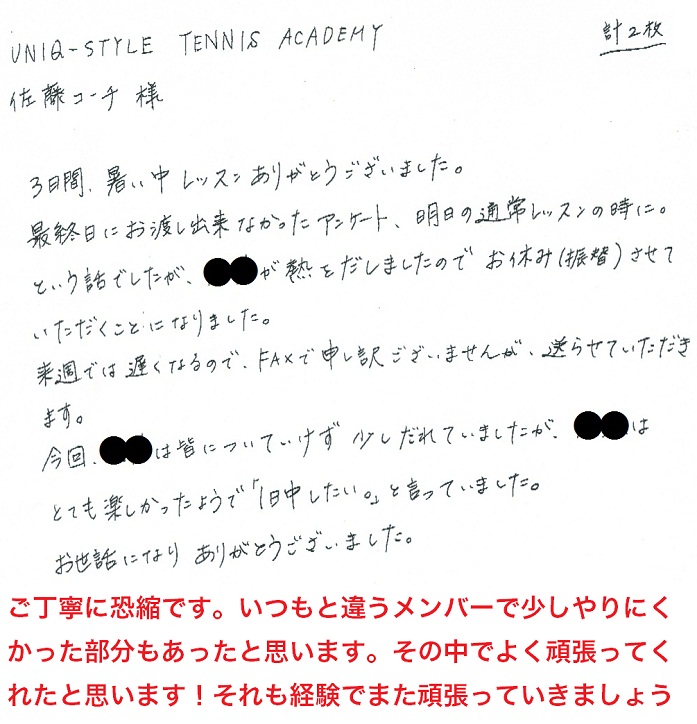 計2枚
UNIQ-STYLE TENNIS ACADEMY
佐藤コーチ 様
3日間、暑い中 レッスン ありがとうございました。
最終日に お渡し出来なかった アンケート、明日の通常レッスンの時に。
という話でしたが、●●が熱をだしましたので お休み(振替)させて
いただくことになりました。
来週では遅くなるので、FAXで申し訳ございませんが、送らせていただき
ます。
今回、●●は皆についていけず 少しだれていましたが、●●は
とても楽しかったようで「1日中したい。」と言っていました。
お世話になり ありがとうございました。
ご丁寧に恐縮です。いつもと違うメンバーで少しやりにく
かった部分もあったと思います。その中でよく頑張ってく
れたと思います!それも経験でまた頑張っていきましょう